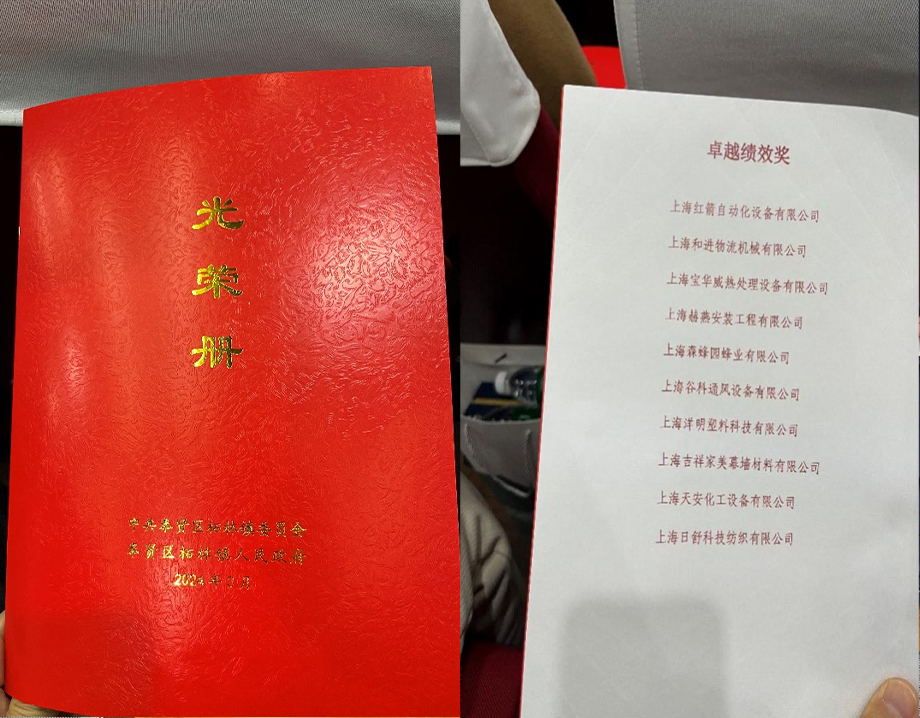 光
荣
册
中共奉贤区柘林镇委员会
奉贤区柘林镇人民政府
2024年2月
卓越绩效奖
上海红箭自动化设备有限公司
上海和进物流机械有限公司
上海宝华威热处理设备有限公司
上海赫燕安装工程有限公司
上海森蜂园蜂业有限公司
上海谷科通风设备有限公司
上海洋明塑料科技有限公司
上海吉祥家美幕墙材料有限公司
上海天安化工设备有限公司
上海日舒科技纺织有限公司